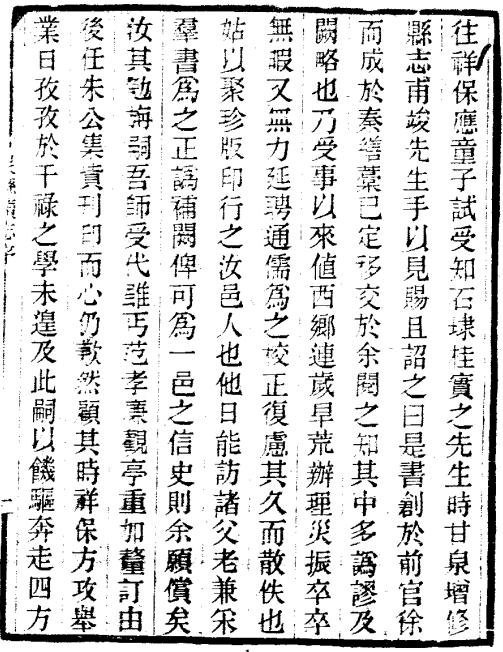 往祥保應童子試受知石埭桂實之先生時甘泉增修
縣志甫竣先生手以見賜且詔之曰是書創於前官徐
而成於秦繕藁已定移交於余閱之知其中多譌謬及
闕略也乃受事以來值西鄉連歲旱荒辦理災振卒卒
無暇又無力延聘通儒爲之校正復慮其久而散佚也
姑以聚珍版印行之汝邑人也他日能訪諸父老兼采
羣書爲之正譌補闕俾可爲一邑之信史則余願償矣
汝其勉旃嗣吾師受代雖丐范孝廉觀亭重加釐訂由
後任朱公集貲刊印而心仍歉然顧其時祥保方攻舉
業日孜孜於干祿之學未遑及此嗣以饑驅奔走四方